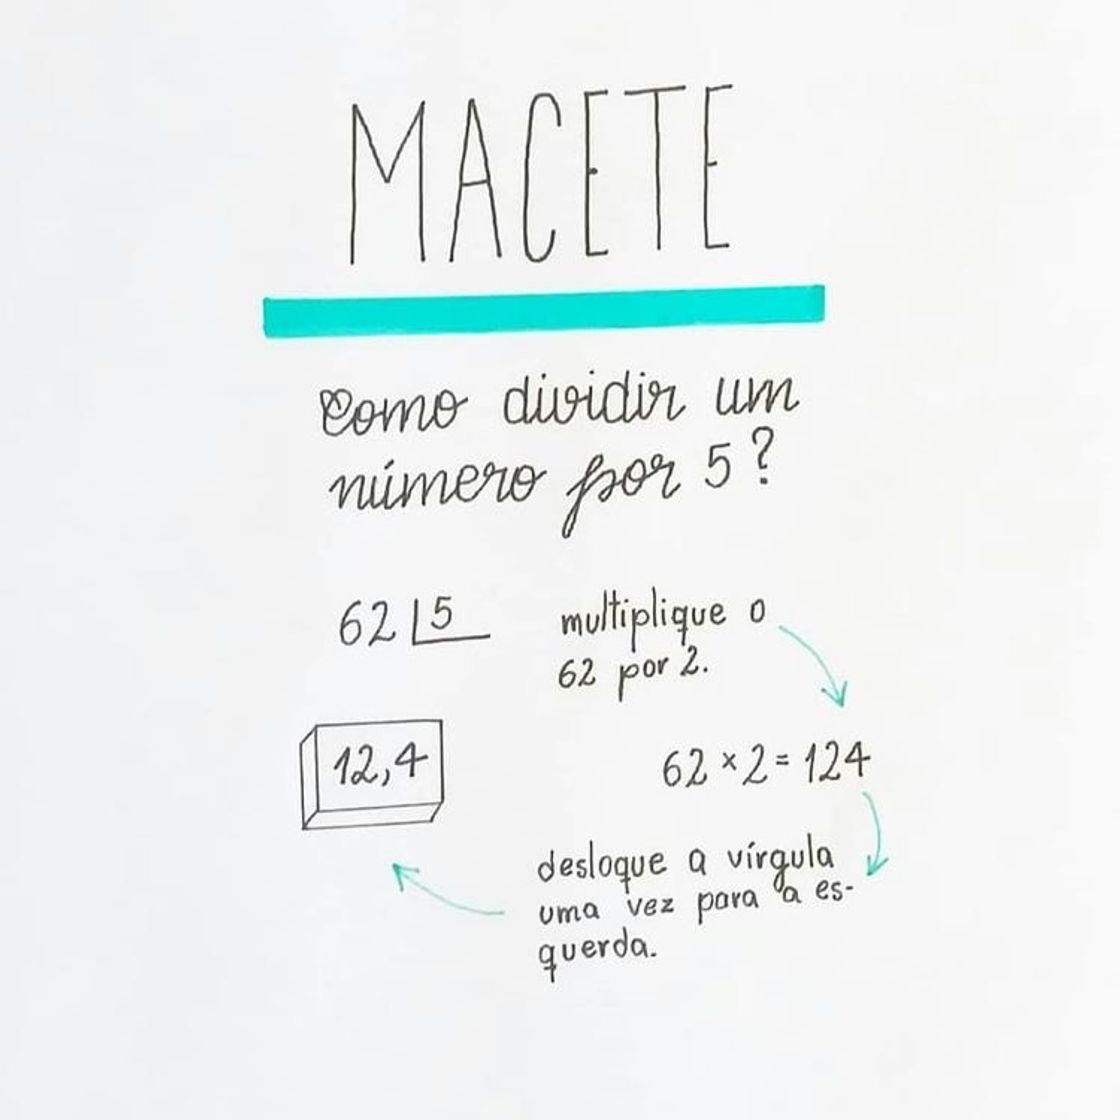 MACETE
Como dividir um
número por 5?
62 5
multiplique o
62 por 2.
62 × 2 = 124
desloque a vírgula
uma vez para a es-
querda.
12,4